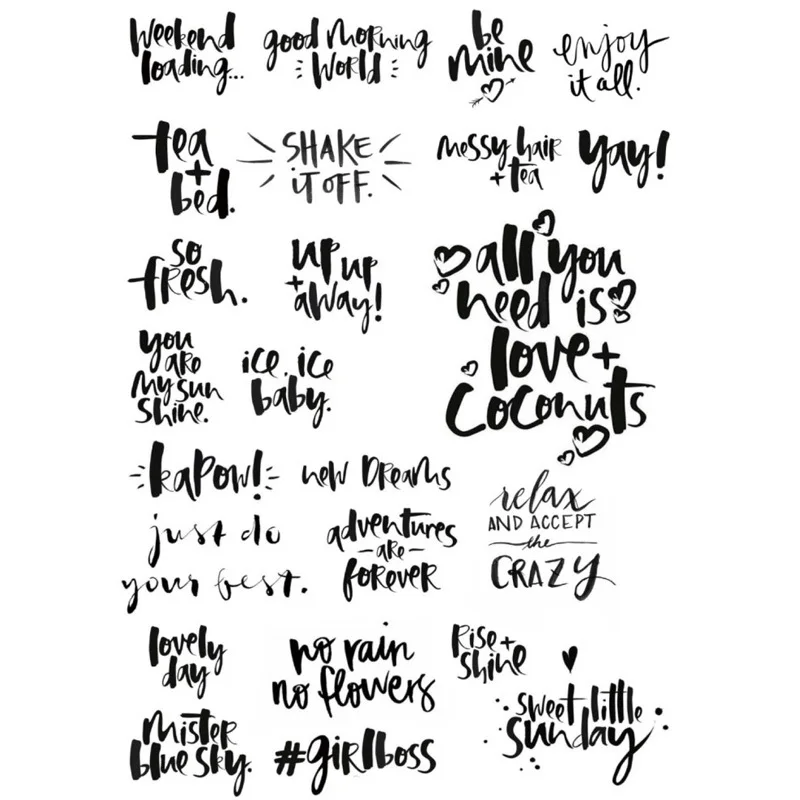 Weekend
loading...
good morning
World
be
mine
enjoy
it all.
tea
+
bed.
SHAKE
iT OFF.
messy hair
+ tea
yay!
so
fresh.
up up
+ away!
all you
need is
love +
coconuts
you
are
my sun
shine.
ice, ice
baby.
kapow!
new Dreams
just do
your best.
adventures
- are -
forever
relax
AND ACCEPT
the
CRAZY
lovely
day
no rain
no flowers
Rise +
shine
sweet little
sunday
Mister
blue sky.
#girlboss